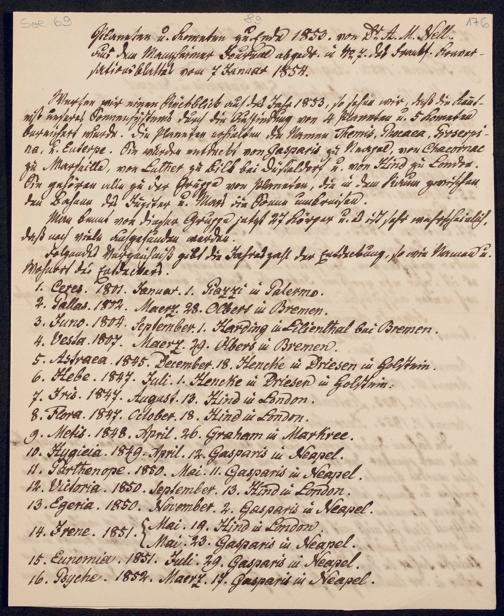 Soe 69
89
176
Planeten u. Kometen zu Ende 1850. von Dr. A. M. Nell.
Aus dem Mannheimer Journal abgedr. in № 7. des Frankf. Konver-
sationsblattes vom 7 Januar 1854.
Werfen wir einen Rückblick auf das Jahr 1853, so sehen wir, daß die Kennt-
niß unseres Sonnensystems durch die Auffindung von 4 Planeten u. 5 Kometen
bereichert wurde. Die Planeten erhielten die Namen Themis, Phocaea, Proserpi-
na, u. Euterpe. Sie wurden entdeckt von Gasparis in Neapel, von Chacornac
zu Marseille, von Luther zu Bilk bei Düsseldorf u. von Hind zu London.
Sie gehören alle zu der Gruppe von Planeten, die in dem Raum zwischen
den Bahnen des Jupiter u. Mars die Sonne umkreisen.
Man kennt von dieser Gruppe jetzt 27 Körper u. es ist sehr wahrscheinlich,
daß noch viele aufgefunden werden.
Folgendes Verzeichniß gibt die Jahreszahl der Entdeckung, so wie Namen u.
Wohnort des Entdeckers.
1. Ceres. 1801. Januar. 1. Piazzi in Palermo.
2. Pallas. 1802. Maerz. 28. Olbers in Bremen.
3. Juno. 1804. September. 1. Harding in Lilienthal bei Bremen.
4. Vesta. 1807. Maerz. 29. Olbers in Bremen.
5. Astraea. 1845. December. 18. Hencke in Driesen in Holstein.
6. Hebe. 1847. Juli. 1. Hencke in Driesen in Holstein.
7. Iris. 1847. August. 13. Hind in London.
8. Flora. 1847. October. 18. Hind in London.
9. Metis. 1848. April. 26. Graham in Markree.
10. Hygieia. 1849. April. 12. Gasparis in Neapel.
11. Parthenope. 1850. Mai. 11. Gasparis in Neapel.
12. Victoria. 1850. September. 13. Hind in London.
13. Egeria. 1850. November. 2. Gasparis in Neapel.
14. Irene. 1851. { Mai. 19. Hind in London.
Mai. 23. Gasparis in Neapel.
15. Eunomia. 1851. Juli. 29. Gasparis in Neapel.
16. Psyche. 1852. Maerz. 17. Gasparis in Neapel.